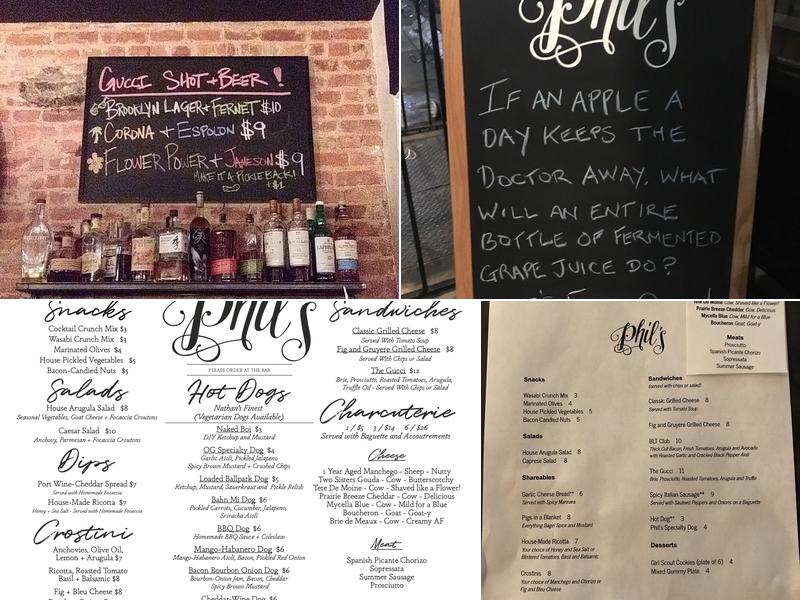 GUCCI SHOT + BEER!
BROOKLYN LAGER + FERNET $10
CORONA + ESPOLON $9
FLOWER POWER + JAMESON $9
MAKE IT A PICKLEBACK!
+$1
Phil's
IF AN APPLE A
DAY KEEPS THE
DOCTOR AWAY, WHAT
WILL AN ENTIRE
BOTTLE OF FERMENTED
GRAPE JUICE DO?
Snacks
Cocktail Crunch Mix $3
Wasabi Crunch Mix $3
Marinated Olives $4
House Pickled Vegetables $5
Bacon-Candied Nuts $5
Salads
House Arugula Salad $8
Seasonal Vegetables, Goat Cheese + Focaccia Croutons
Caesar Salad $10
Anchovy, Parmesan + Focaccia Croutons
Dips
Port Wine-Cheddar Spread $7
Served with Homemade Focaccia
House-Made Ricotta $7
Honey + Sea Salt - Served with Homemade Focaccia
Crostini
Anchovies, Olive Oil,
Lemon + Arugula $7
Ricotta, Roasted Tomato
Basil + Balsamic $8
Fig + Bleu Cheese $8
Phil's
PLEASE ORDER AT THE BAR
Hot Dogs
Nathan's Finest
(Vegetarian Dogs Available)
Naked Boi $3
DIY Ketchup and Mustard
OG Specialty Dog $4
Garlic Aioli, Pickled Jalapeno
Spicy Brown Mustard + Crushed Chips
Loaded Ballpark Dog $5
Ketchup, Mustard, Sauerkraut and Pickle Relish
Bahn Mi Dog $6
Pickled Carrots, Cucumber, Jalapeno,
Sriracha Aioli
BBQ Dog $6
Homemade BBQ Sauce + Coleslaw
Mango-Habanero Dog $6
Mango-Habanero Aioli, Bacon, Pickled Red Onion
Bacon Bourbon Onion Dog $6
Bourbon-Onion Jam, Bacon, Cheddar
Spicy Brown Mustard
Cheddar-Wine Dog $6
Sandwiches
Classic Grilled Cheese $8
Served With Tomato Soup
Fig and Gruyere Grilled Cheese $8
Served With Chips or Salad
The Gucci $12
Brie, Prosciutto, Roasted Tomatoes, Arugula,
Truffle Oil - Served With Chips or Salad
Charcuterie
1 / $5 3 / $14 6 / $26
Served with Baguette and Accoutrements
Cheese
1 Year Aged Manchego - Sheep - Nutty
Two Sisters Gouda - Cow - Butterscotchy
Tete De Moine - Cow - Shaved like a Flower!
Prairie Breeze Cheddar - Cow - Delicious
Mycella Bleu - Cow - Mild for a Blue
Boucheron - Goat - Goat-y
Brie de Meaux - Cow - Creamy AF
Meat
Spanish Picante Chorizo
Sopressata
Summer Sausage
Prosciutto
Tete De Moine Cow, Shaved like a Flower!
Prairie Breeze Cheddar Cow, Delicious
Mycella Bleu Cow, Mild for a Blue
Boucheron Goat, Goat-y
Meats
Prosciutto
Spanish Picante Chorizo
Sopressata
Summer Sausage
Phil's
Snacks
Wasabi Crunch Mix 3
Marinated Olives 4
House Pickled Vegetables 5
Bacon-Candied Nuts 5
Salads
House Arugula Salad 8
Caprese Salad 8
Shareables
Garlic Cheese Bread** 6
Served with Spicy Marinara
Pigs in a Blanket 8
Everything Bagel Spice and Mustard
House-Made Ricotta 7
Your choice of Honey and Sea Salt or
Blistered Tomatoes, Basil and Balsamic
Crostinis 8
Your choice of Manchego and Chorizo or
Fig and Bleu Cheese
Sandwiches
(served with chips or salad)
Classic Grilled Cheese 8
Served with Tomato Soup
Fig and Gruyere Grilled Cheese 8
BLT Club 10
Thick Cut Bacon, Fresh Tomatoes, Arugula and Avocado
with Roasted Garlic and Cracked Black Pepper Aioli
The Gucci 11
Brie, Prosciutto, Roasted Tomatoes, Arugula and Truffle
Spicy Italian Sausage** 9
Served with Sauteed Peppers and Onions on a Baguette
Hot Dog** 3
Phil's Specialty Dog 4
Desserts
Girl Scout Cookies (plate of 6) 4
Mixed Gummy Plate 4